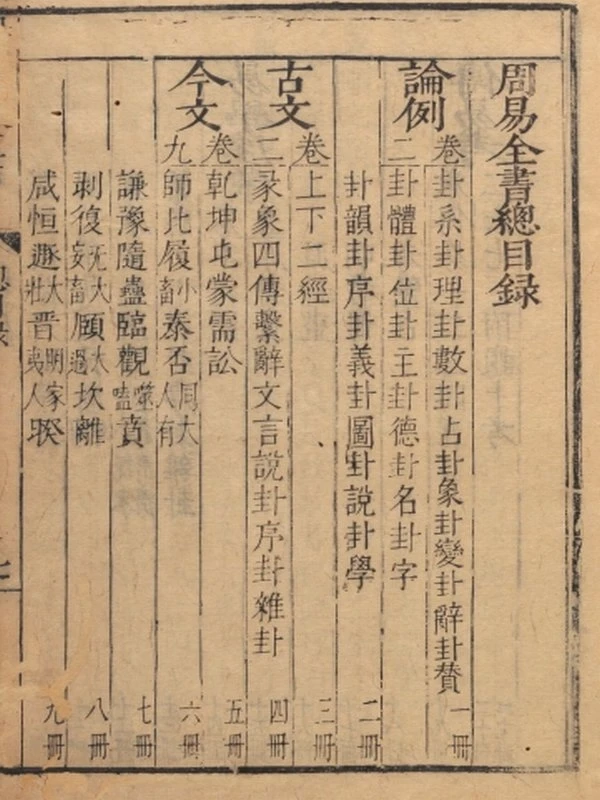 周易全書總目錄
論例
卷二
卦系卦理卦數卦占卦象卦變卦辭卦賛 一冊
卦體卦位卦主卦德卦名卦字
卦韻卦序卦義卦圖卦說卦學 二冊
古文
卷二
上下二經 三冊
彖象四傳繫辭文言說卦序卦雜卦 四冊
今文
卷九
乾坤屯蒙需訟 五冊
師比履小畜泰否同人大有 六冊
謙豫隨蠱臨觀噬嗑賁 七冊
剥復无妄大畜頤大過坎離 八冊
咸恒遯大壯晉明夷家人睽 九冊